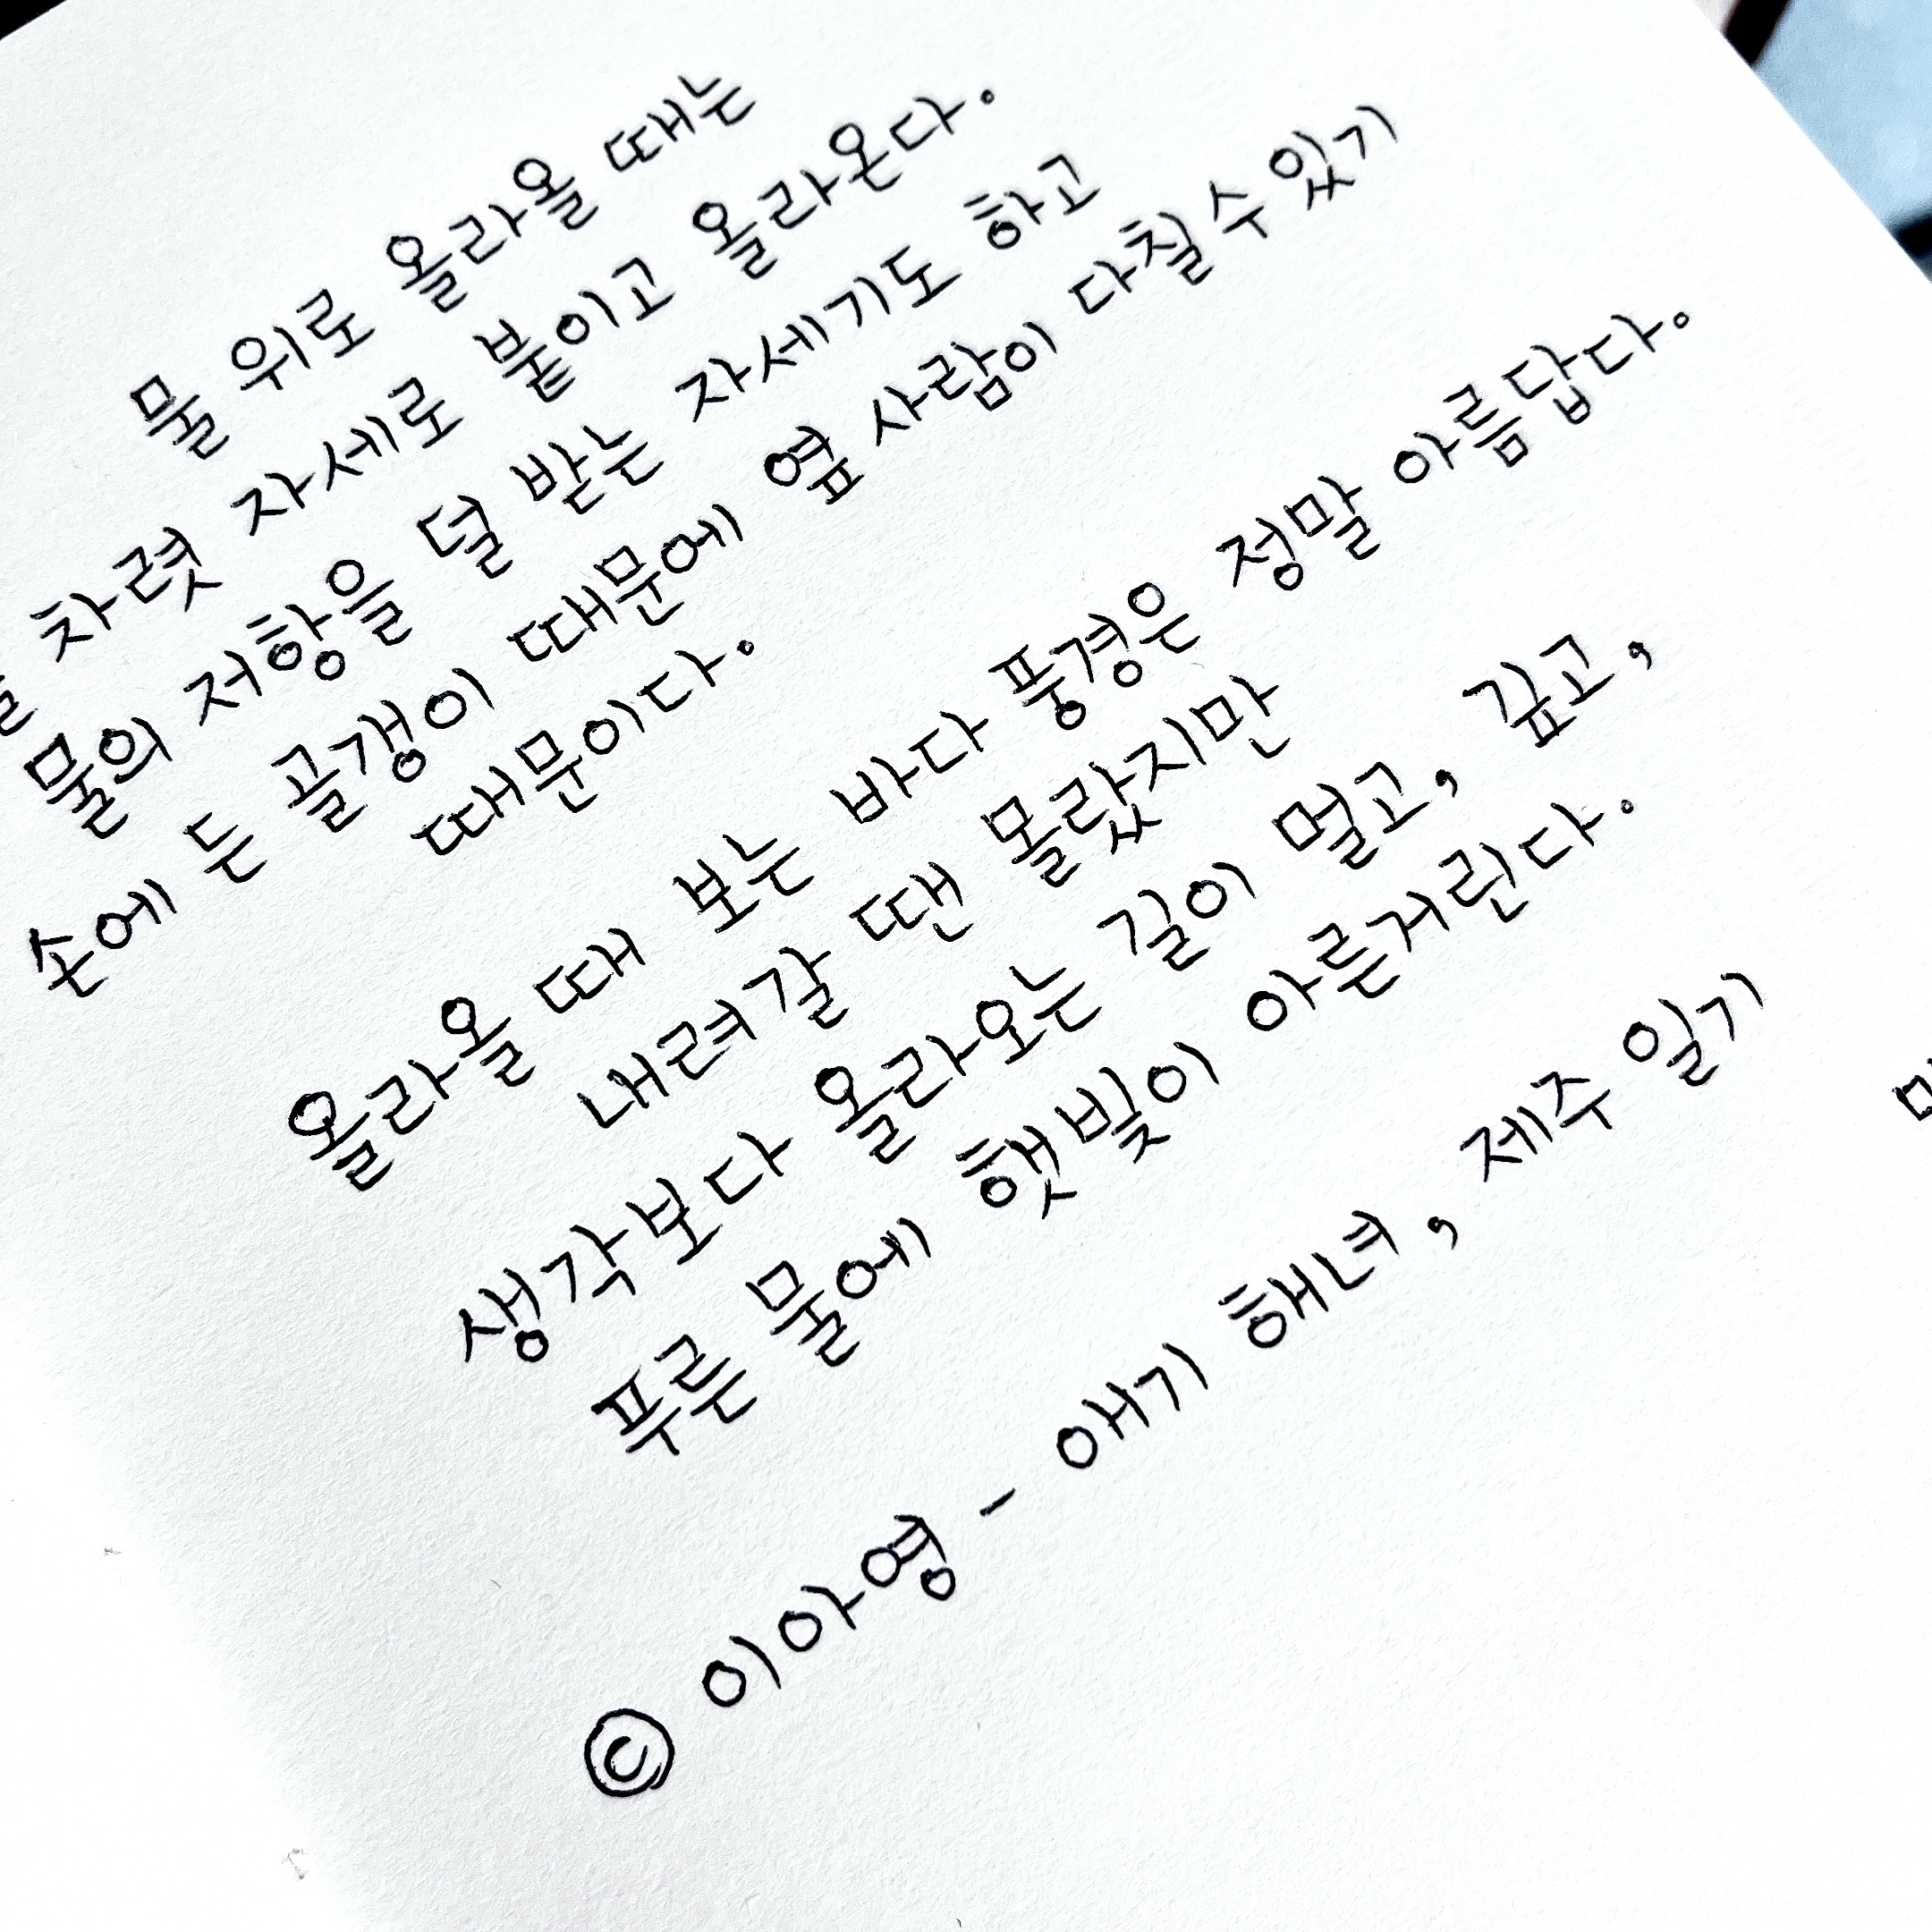 물 위로 올라올 때는
차렷 자세로 붙이고 올라온다.
물의 저항을 덜 받는 자세기도 하고
손에 든 골갱이 때문에 옆 사람이 다칠 수 있기
때문이다.
올라올 때 보는 바다 풍경은 정말 아름답다.
내려갈 땐 몰랐지만
생각보다 올라오는 길이 멀고, 깊고,
푸른 물에 햇빛이 아른거린다.
© 이아영 - 애기 해녀, 제주 일기